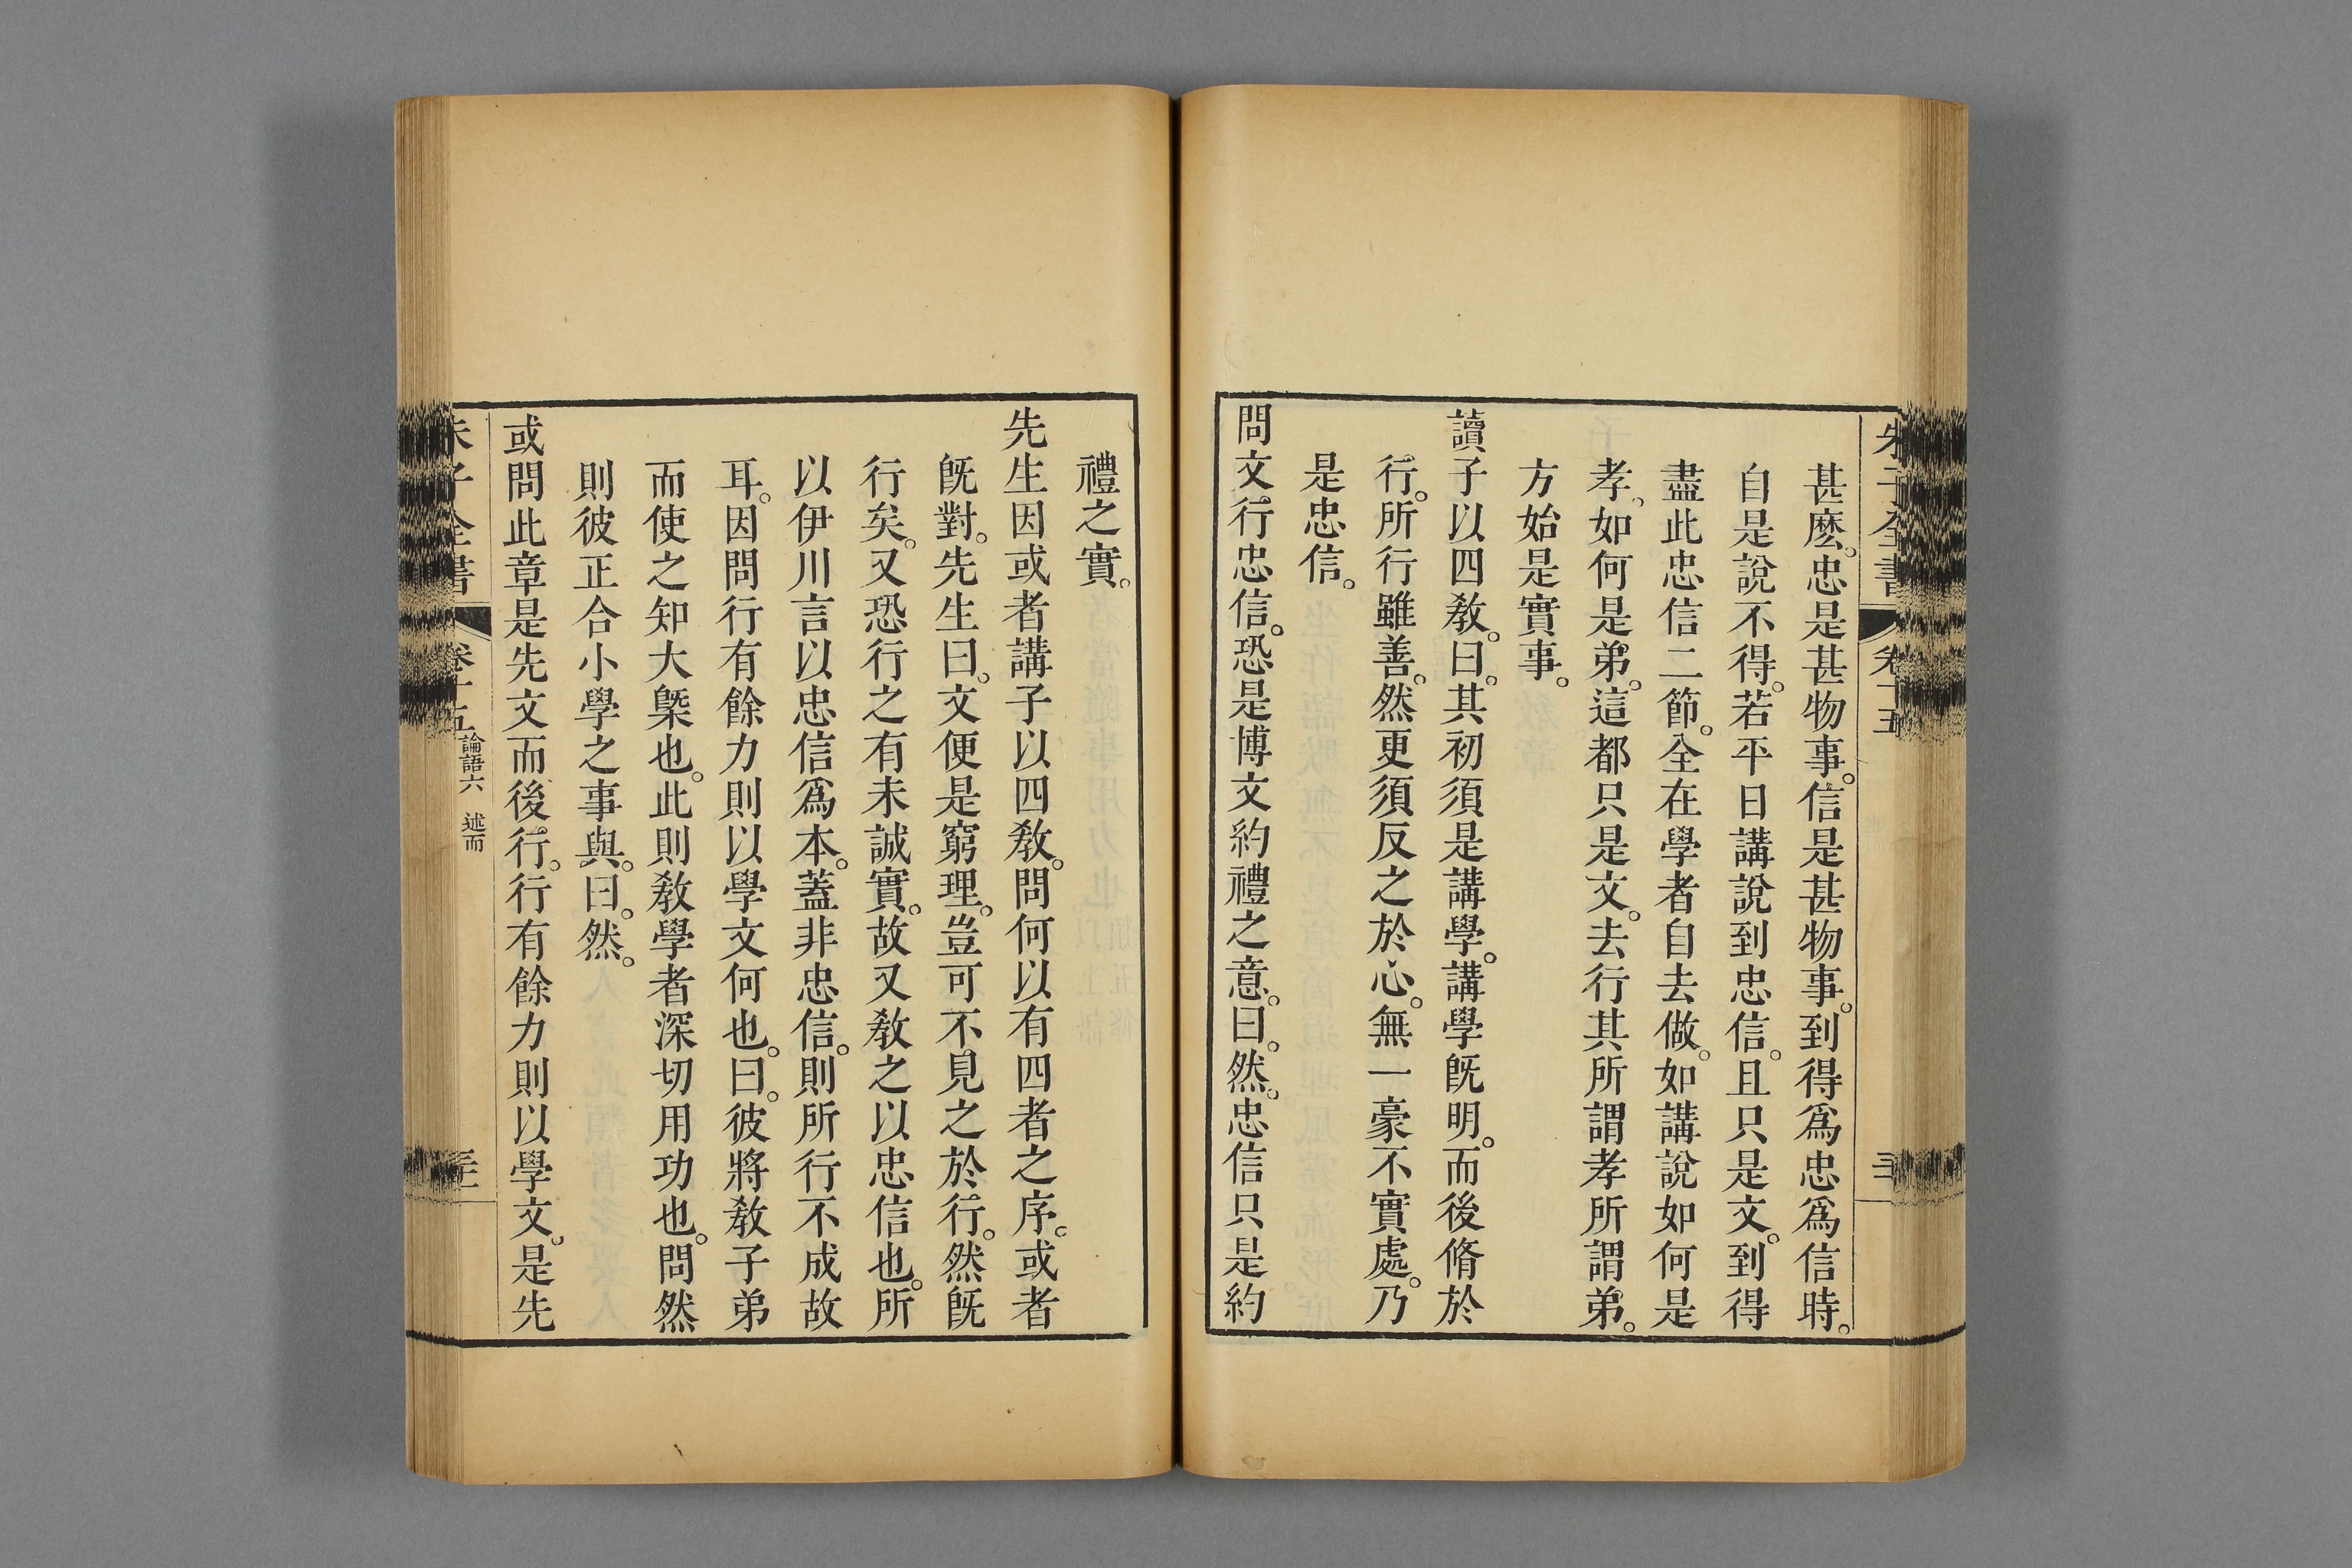 朱子全書 卷十五
甚麽。忠是甚物事。信是甚物事。到得爲忠爲信時。
自是說不得。若平日講說到忠信。且只是文。到得
盡此忠信二節。全在學者自去做。如講說如何是
孝、如何是弟。這都只是文。去行其所謂孝所謂弟。
方始是實事。
讀子以四敎。曰。其初須是講學。講學旣明。而後脩於
行。所行雖善。然更須反之於心。無一豪不實處。乃
是忠信。
問文行忠信。恐是博文約禮之意。曰。然。忠信只是約
禮之實。
先生因或者講子以四敎。問何以有四者之序。或者
旣對。先生曰。文便是窮理。豈可不見之於行。然旣
行矣。又恐行之有未誠實。故又敎之以忠信也。所
以伊川言以忠信爲本。蓋非忠信。則所行不成故
耳。因問行有餘力則以學文何也。曰。彼將敎子弟
而使之知大槩也。此則敎學者深切用功也。問然
則彼正合小學之事與。曰。然。
或問此章是先文而後行。行有餘力則以學文。是先
朱子全書 卷十五 論語六 述而